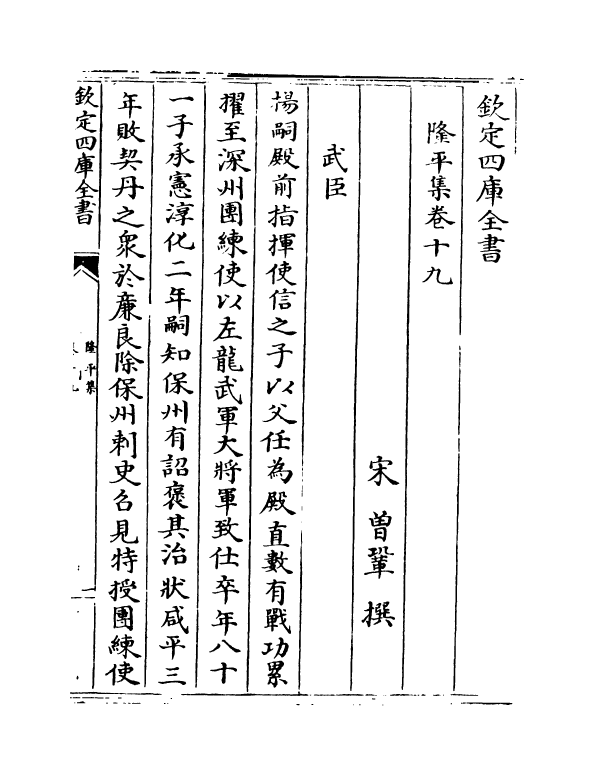 欽定四庫全書
隆平集卷十九
宋 曽鞏 撰
武臣
楊嗣殿前指揮使信之子以父任為殿直數有戰功累
擢至深州團練使以左龍武軍大將軍致仕卒年八十
一子承憲淳化二年嗣知保州有詔褒其治狀咸平三
年敗契丹之衆於廉良除保州刺史召見特授團練使
欽定四庫全書
隆平集